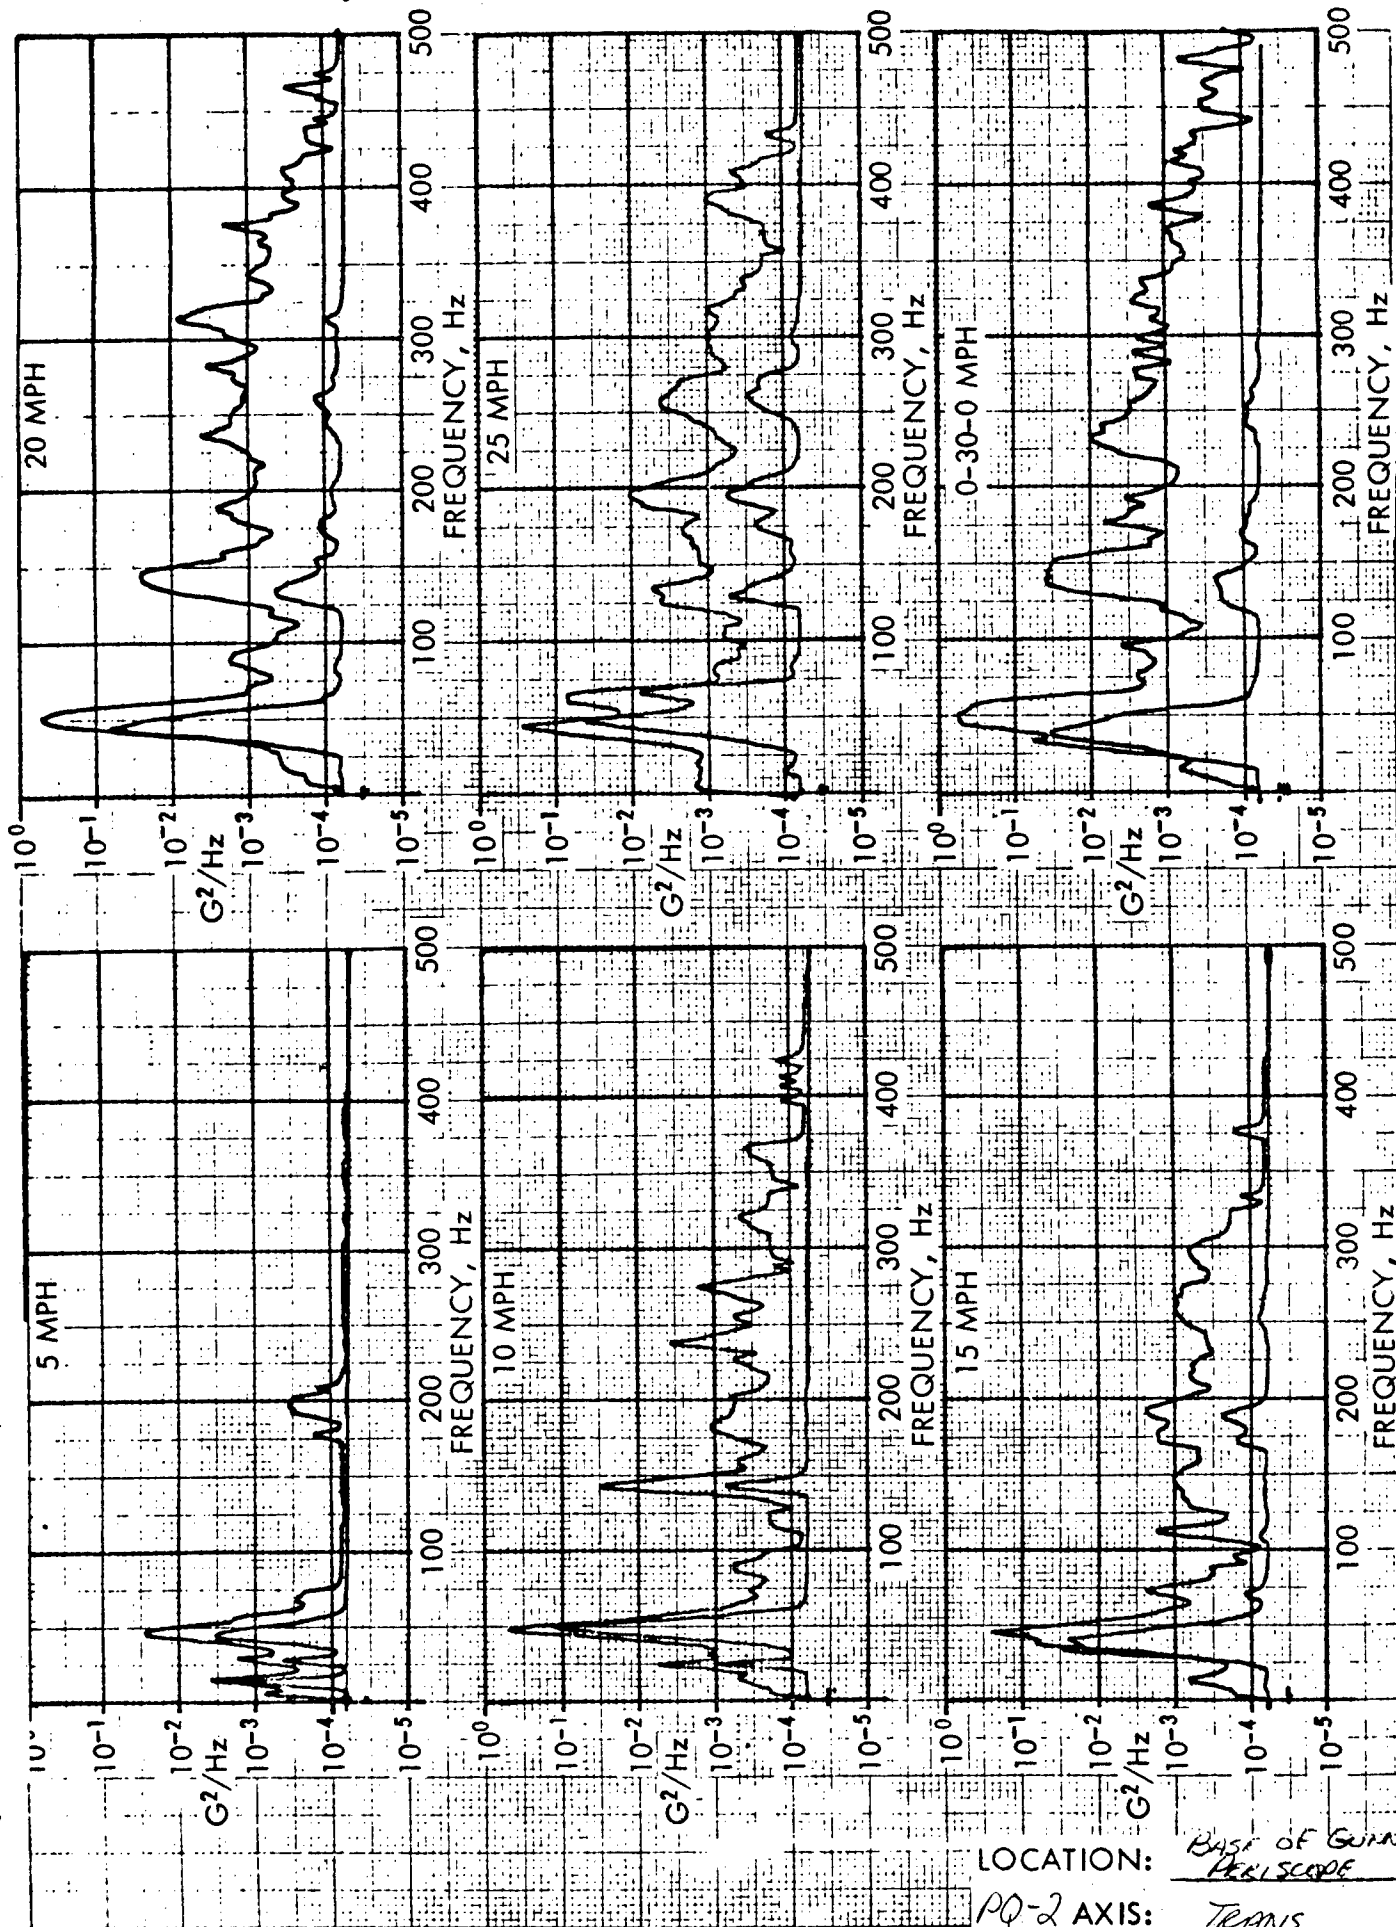 5 MPH
10⁻¹
10⁻²
10⁻³
10⁻⁴
10⁻⁵
G²/Hz
100 200 300 400 500
FREQUENCY, Hz
20 MPH
10⁰
10⁻¹
10⁻²
10⁻³
10⁻⁴
10⁻⁵
G²/Hz
100 200 300 400 500
FREQUENCY, Hz
10 MPH
10⁰
10⁻¹
10⁻²
10⁻³
10⁻⁴
10⁻⁵
G²/Hz
100 200 300 400 500
FREQUENCY, Hz
25 MPH
10⁰
10⁻¹
10⁻²
10⁻³
10⁻⁴
10⁻⁵
G²/Hz
100 200 300 400 500
FREQUENCY, Hz
15 MPH
10⁰
10⁻¹
10⁻²
10⁻³
10⁻⁴
10⁻⁵
G²/Hz
100 200 300 400 500
FREQUENCY, Hz
0-30-0 MPH
10⁰
10⁻¹
10⁻²
10⁻³
10⁻⁴
10⁻⁵
G²/Hz
100 200 300 400 500
FREQUENCY, Hz
LOCATION: BASE OF GUNN
PERISCOPE
PQ-2 AXIS: TRANS